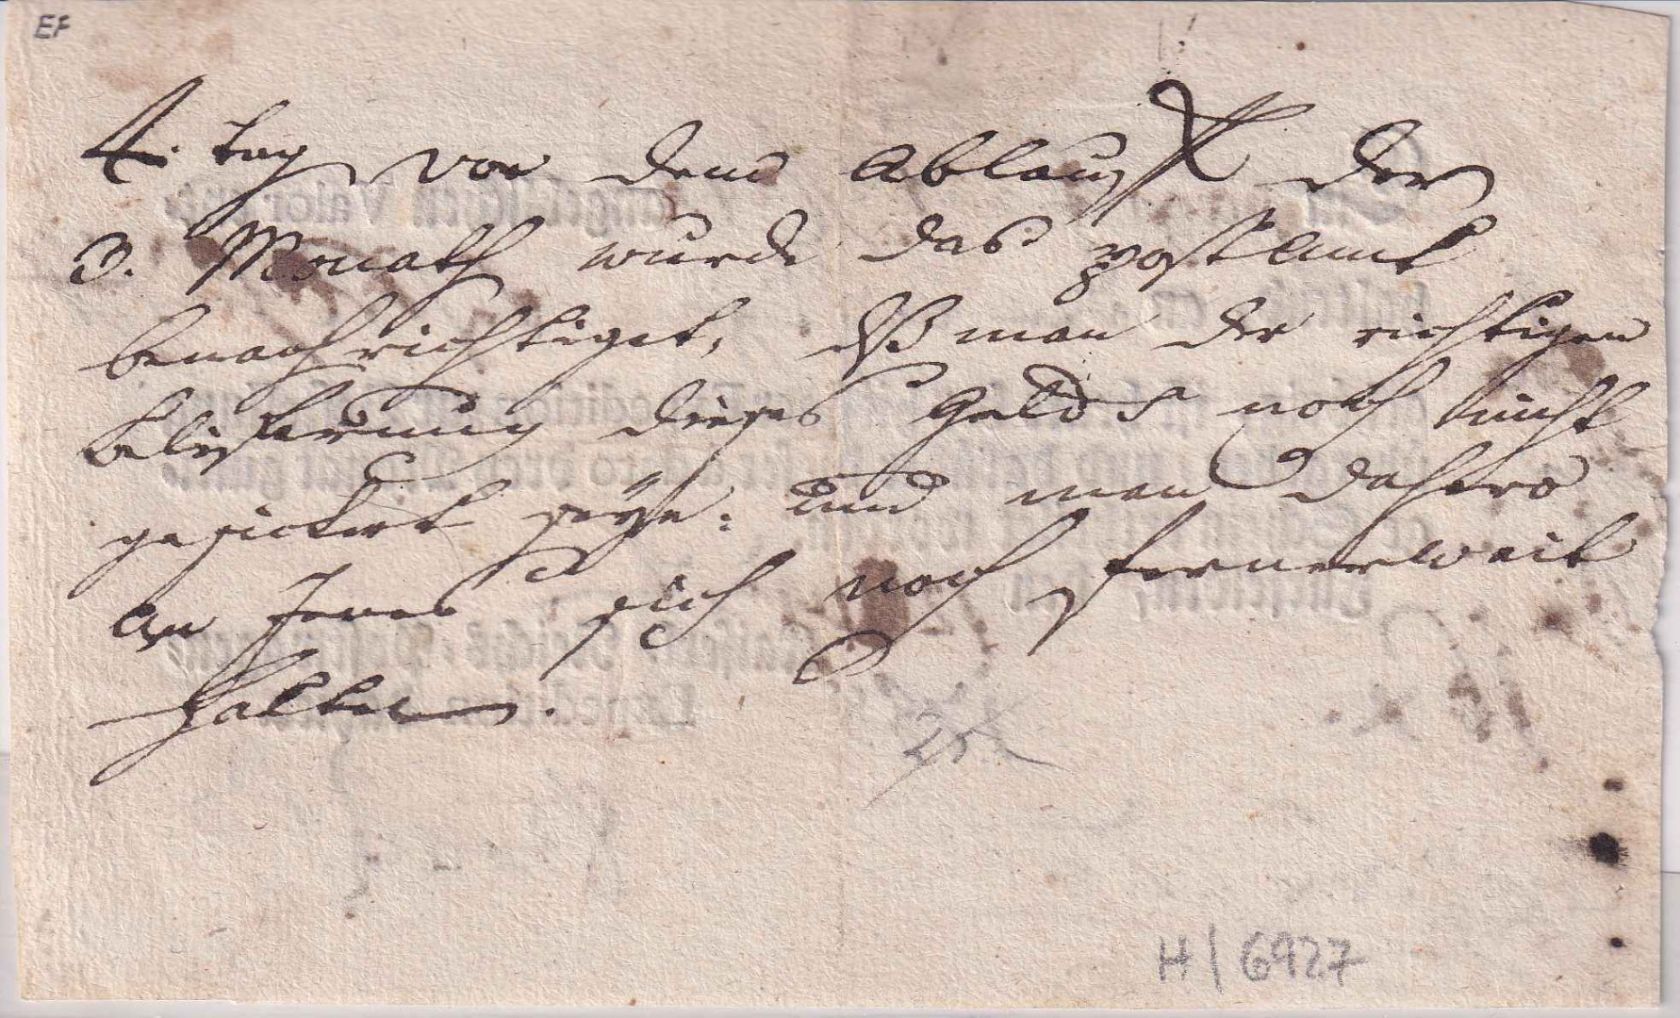 EF
4. tag vor dem Ablauff der
3. Monath wurde das postamt
benachrichtiget, dß man der richtigen
beliferung dieses Gelds noch nicht
gesichert seye: und man dahero
an Jenes sich noch fernerweit
halte.
H/6927